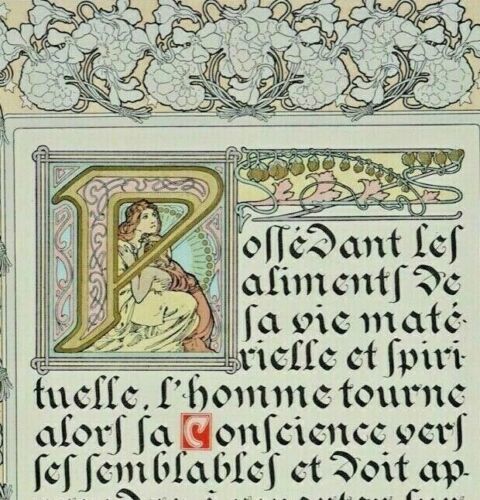 Possédant les
aliments de
sa vie maté-
rielle et spiri-
tuelle, l'homme tourne
alors sa Conscience vers
ses semblables et doit ap-